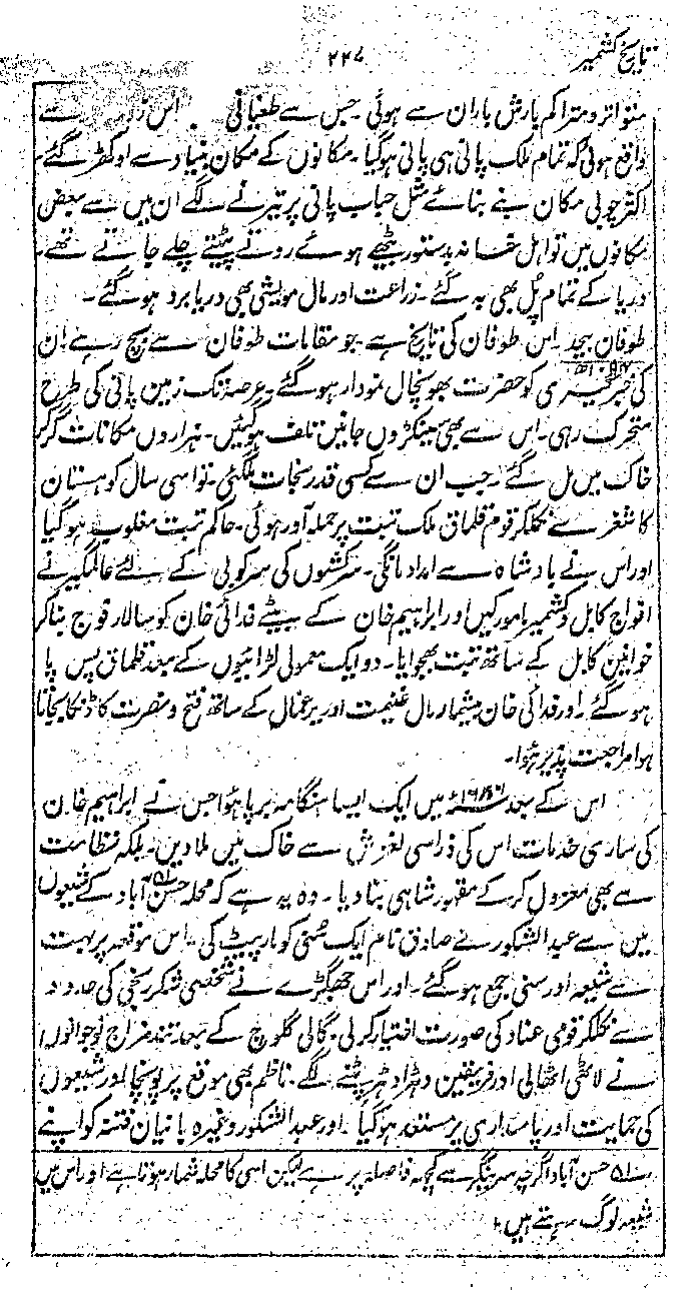 تاریخ کشمیر
۲۲۷
متواتر و متراکم بارش باران سے ہوئی۔ جس سے طغیانی اس زور سے
واقع ہوئی کہ تمام ملک پانی ہی پانی ہوگیا۔ مکانوں کے مکان بنیاد سے اوکھڑ گئے۔
اکثر چوبی مکان بنے بنائے مثل حباب پانی پر تیرنے لگے ان میں سے بعض
مکانوں میں تو اہل خانہ بدستور بیٹھے ہوئے روتے پیٹتے چلے جاتے تھے۔
دریا کے تمام پُل بھی بہ گئے۔ زراعت اور مال مویشی بھی دریا برد ہوگئے۔
طوفان بیحد اس طوفان کی تاریخ ہے۔ جو مقامات طوفان سے بچ رہے ان
کی خبرگیری کو حضرت بھونچال نمودار ہوگئے۔ عرصہ تک زمین پانی کی طرح
متحرک رہی۔ اس سے بھی سینکڑوں جانیں تلف ہوگئیں۔ ہزاروں مکانات گر کر
خاک میں مل گئے۔ جب ان سے کسی قدر نجات ملگئی۔ تو اسی سال کوہستان
کاشغر سے نکلکر قوم قلماق ملک تبت پر حملہ آور ہوئی۔ حاکم تبت مغلوب ہوگیا
اور اس نے بادشاہ سے امداد مانگی۔ سرکشوں کی سرکوبی کے لئے عالمگیر نے
افواج کابل و کشمیر مامور کیں اور ابراہیم خان کے بیٹے فدائی خان کو سالار فوج بناکر
خوانین کابل کے ساتھ تبت بھجوایا۔ دو ایک معمولی لڑائیوں کے بعد قلماق پس پا
ہوگئے۔ اور فدائی خان بیشمار مال غنیمت اور یرغمال کے ساتھ فتح و نصرت کا ڈنکا بجاتا
ہوا مراجعت پذیر ہوا۔
اس کے بعد میں ایک ایسا ہنگامہ برپا ہوا جس نے ابراہیم خان
کی ساری خدمات اس کی ذرا سی لغزش سے خاک میں ملا دیں۔ بلکہ نظامت
سے بھی معزول کر کے مقہور شاہی بنا دیا۔ وہ یہ ہے کہ محلہ حسن آباد کے شیعوں
میں سے عبدالشکور نے صادق نام ایک سُنی کو مار پیٹ کی۔ اس موقعہ پر بہت
سے شیعہ اور سنی جمع ہوگئے۔ اور اس جھگڑے نے شخصی شکر رنجی کی حدود
سے نکلکر قومی عناد کی صورت اختیار کر لی۔ گالی گلوچ کے بعد تند مزاج نوجوانوں
نے لاٹھی اٹھالی اور فریقین دھڑا دھڑ پٹنے لگے۔ ناظم بھی موقع پر پہونچا اور شیعوں
کی حمایت اور پاسداری پر مستعد ہوگیا۔ اور عبدالشکور وغیرہ بانیان فتنہ کو اپنے
حسن آباد اگرچہ سرینگر سے کچھ فاصلہ پر ہے لیکن اسی کا محلہ شمار ہوتا ہے اور اس میں
شیعہ لوگ رہتے ہیں۔